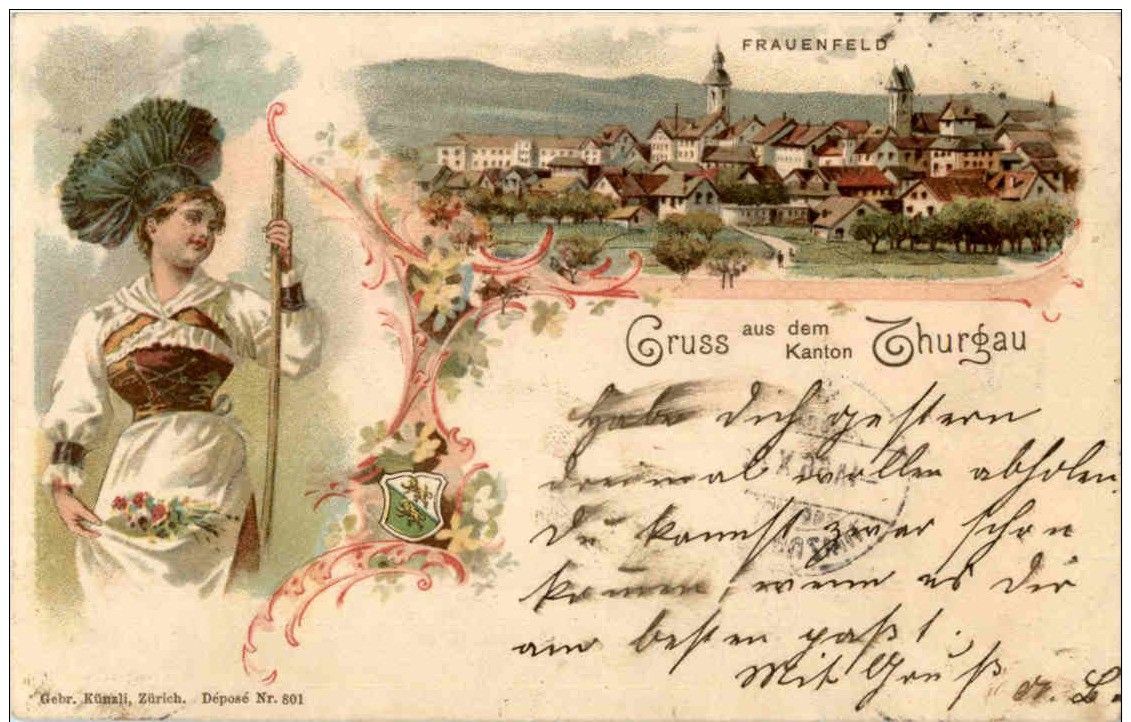 FRAUENFELD
Gruss aus dem Kanton Thurgau
Habe dich gestern
dreimal wollen abholen.
Du kannst zwar schon
kommen, wenn es dir
am besten paßt.
Mit Gruß
L.
Gebr. Künzli, Zürich. Déposé Nr. 801